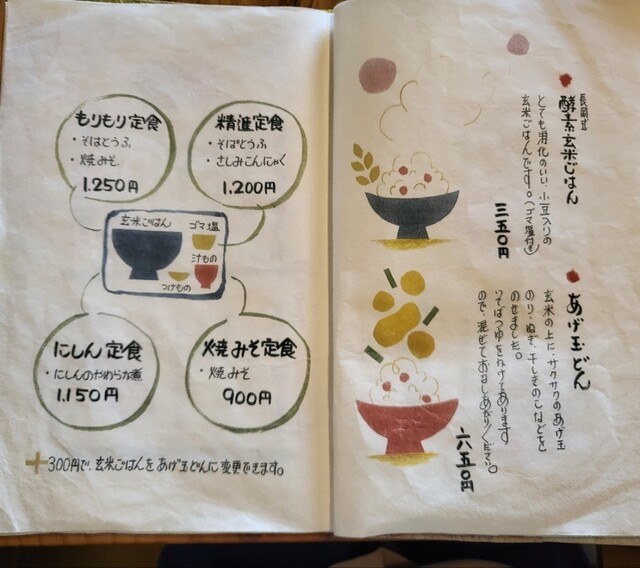 もりもり定食
・そばとうふ
・焼みそ
1.250円
精進定食
・そばとうふ
・さしみこんにゃく
1.200円
玄米ごはん
ゴマ塩
汁もの
つけもの
にしん定食
・にしんのやわらか煮
1.150円
焼みそ定食
・焼みそ
900円
+300円で、玄米ごはんをあげ玉どんに変更できます。
長岡式
酵素玄米ごはん
とても消化のいい、小豆入りの
玄米ごはんです。(ゴマ塩付き)
三五0円
あげ玉どん
玄米の上に、サクサクのあげ玉
のり・ねぎ・干しきのこなどを
のせました。
そばつゆをかけてあります
ので、混ぜておめしあがりください。
六五0円